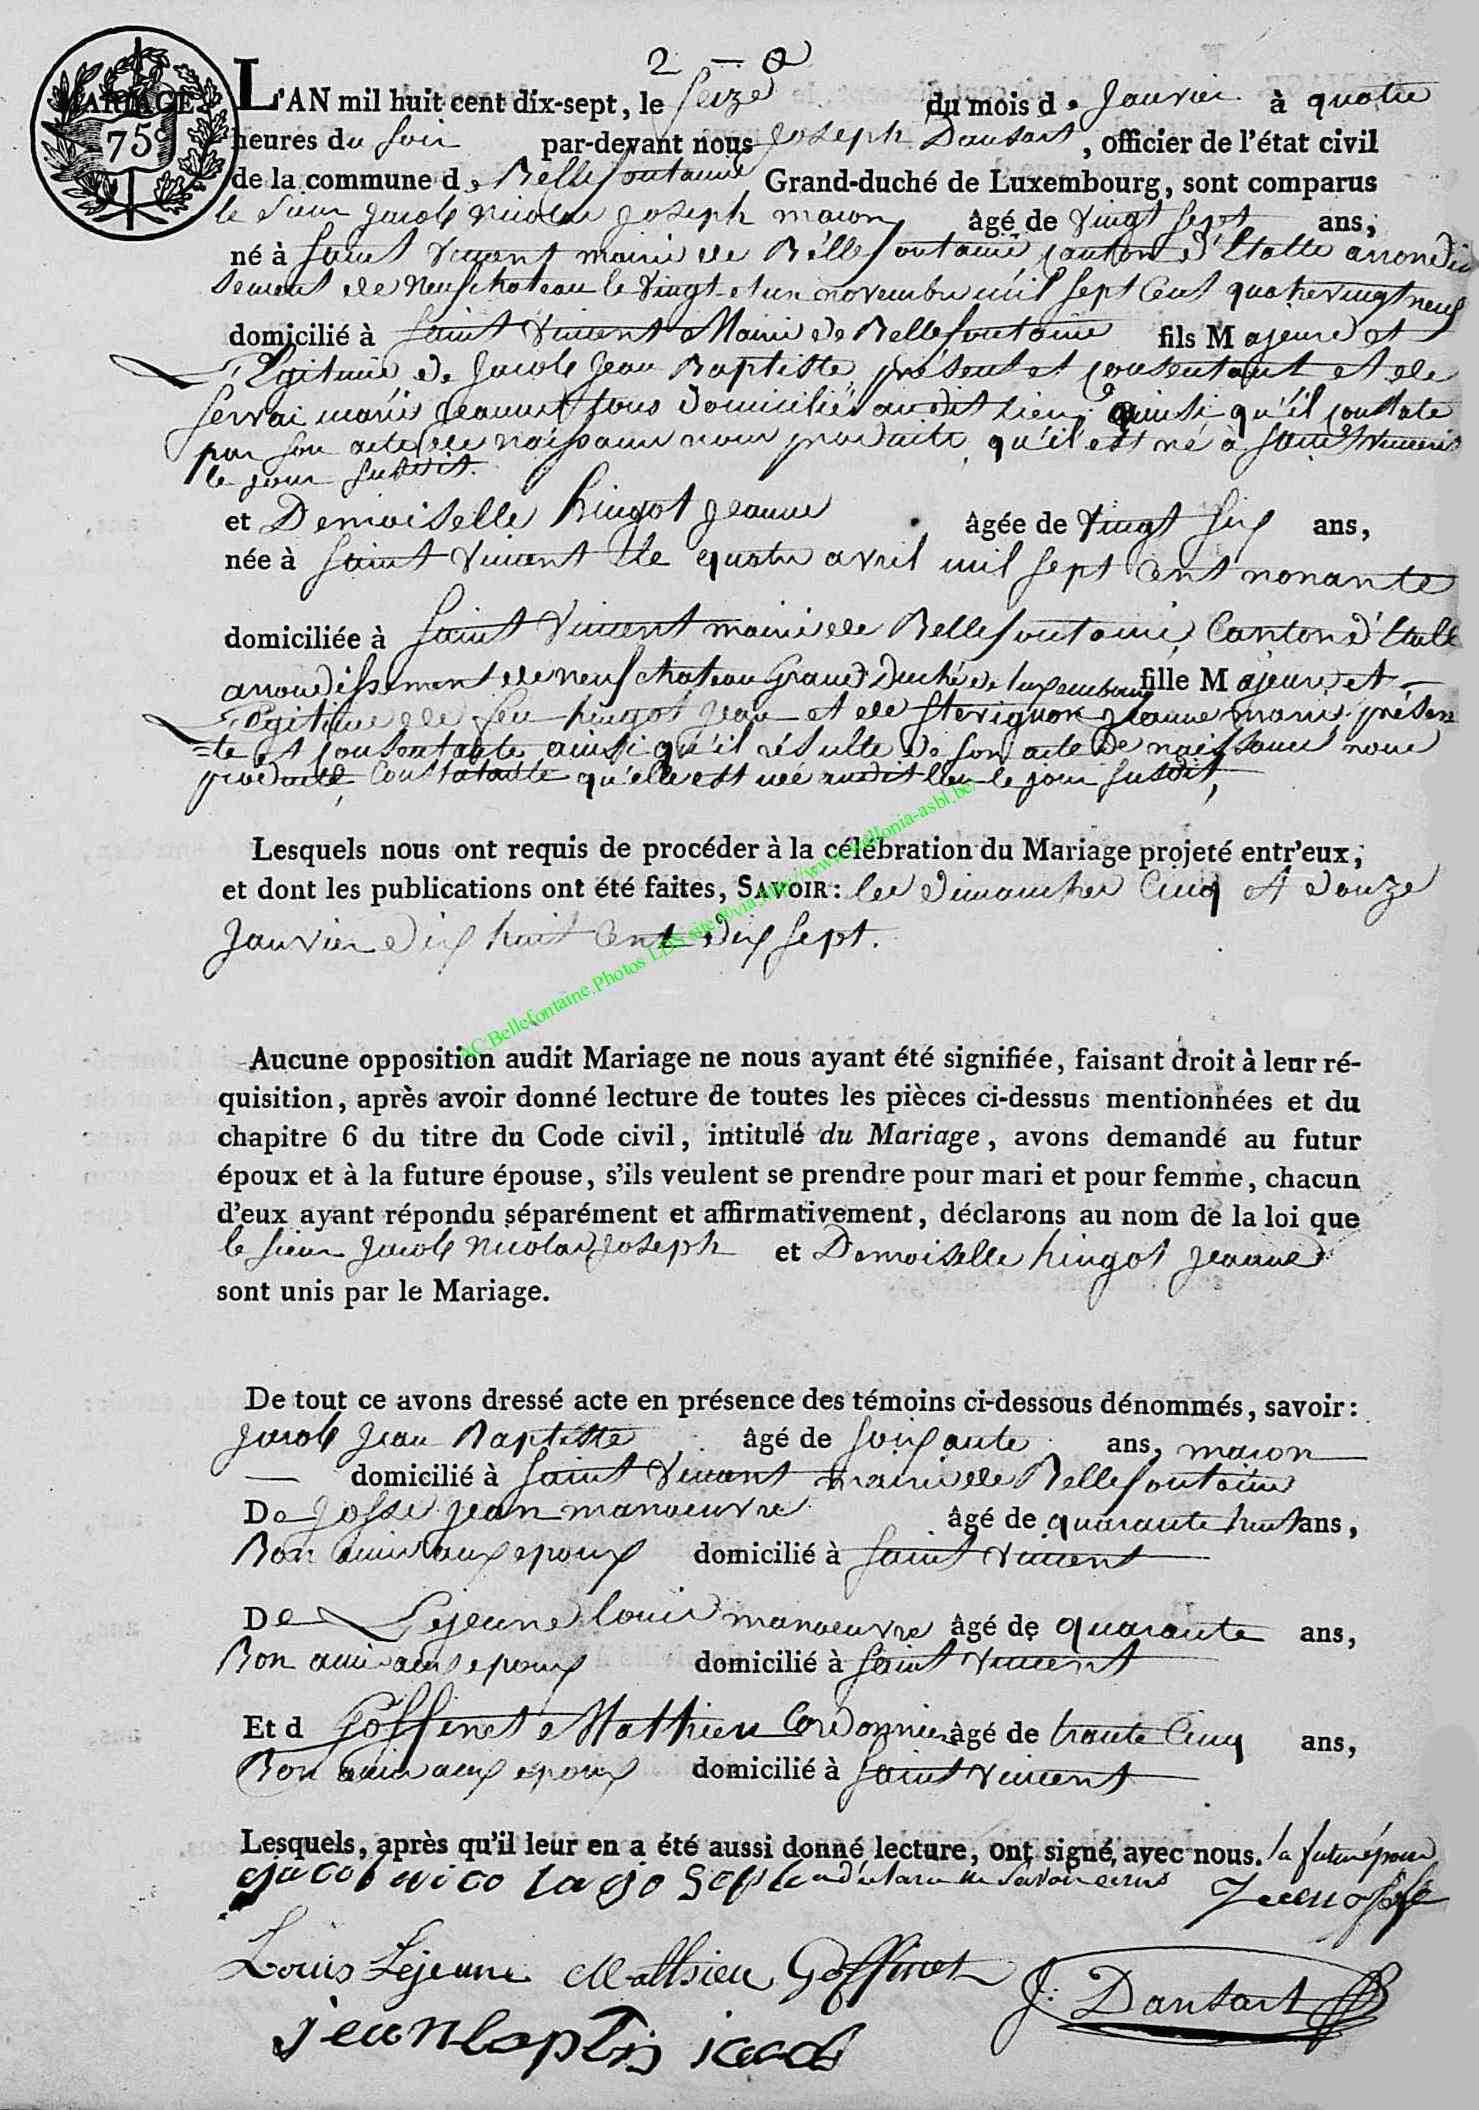 2 - 8
MARIAGE
75c
L'AN mil huit cent dix-sept, le Seize du mois d. Janvier à quatre
heures du Soir par-devant nous Joseph Dansart, officier de l'état civil
de la commune d. Bellefontaine Grand-duché de Luxembourg, sont comparus
le Sieur Jacob Nicolas Joseph macon âgé de vingt sept ans,
né à Saint Vincent mairie de Bellefontaine canton d'Etalle arrondis
sement de Neufchateau le vingt et un novembre mil sept cent quatrevingt neuf
domicilié à Saint Vincent Mairie de Bellefontaine fils Majeure et
Legitime de Jacob Jean Baptiste présent et consentant et de
Servai marie Jeanne tous domiciliés audit lieu, ainsi qu'il constate
par son acte de naissance nous produite, qu'il est né à Saint Vincent
le jour susdit.
et Demoiselle hingot Jeanne âgée de vingt six ans,
née à Saint Vincent le quatre avril mil sept cent nonante
domiciliée à Saint Vincent mairie de Bellefontaine, Canton d'Etalle
arrondissement de neufchateau Grand Duché de luxembourg fille Majeure et
Legitime de feu hingot Jean et de Jeanne marie présen
=te et consentante ainsi qu'il résulte de son acte de naissance nous
produite, constatante qu'elle est née audit lieu le jour susdit,
Lesquels nous ont requis de procéder à la célébration du Mariage projeté entr'eux,
et dont les publications ont été faites, SAVOIR: les dimanches cinq et douze
Janvier dix huit cent dix sept.
AC Bellefontaine.Photos LDS site @via http://www.wallonia-asbl.be/
Aucune opposition audit Mariage ne nous ayant été signifiée, faisant droit à leur ré-
quisition, après avoir donné lecture de toutes les pièces ci-dessus mentionnées et du
chapitre 6 du titre du Code civil, intitulé du Mariage, avons demandé au futur
époux et à la future épouse, s'ils veulent se prendre pour mari et pour femme, chacun
d'eux ayant répondu séparément et affirmativement, déclarons au nom de la loi que
le sieur Jacob Nicolas Joseph et Demoiselle hingot Jeanne
sont unis par le Mariage.
De tout ce avons dressé acte en présence des témoins ci-dessous dénommés, savoir:
Jacob Jean Baptiste âgé de soixante ans, macon
domicilié à Saint Vincent mairie de Bellefontaine
De Josse jean manoeuvre âgé de quarante huit ans,
Bon ami aux epoux domicilié à Saint Vincent
De Lejeune louis manoeuvre âgé de quarante ans,
Bon ami aux epoux domicilié à Saint Vincent
Et d Goffinet Mathieu Cordonnier âgé de trente cinq ans,
Bon ami aux epoux domicilié à Saint Vincent
Lesquels, après qu'il leur en a été aussi donné lecture, ont signé, avec nous. la future épouse
jacob nico la jo Seph a déclaré ne savoir
Jean josse
Louis Lejeune Mathieu Goffinet
J: Dansart
jean baptis jacob